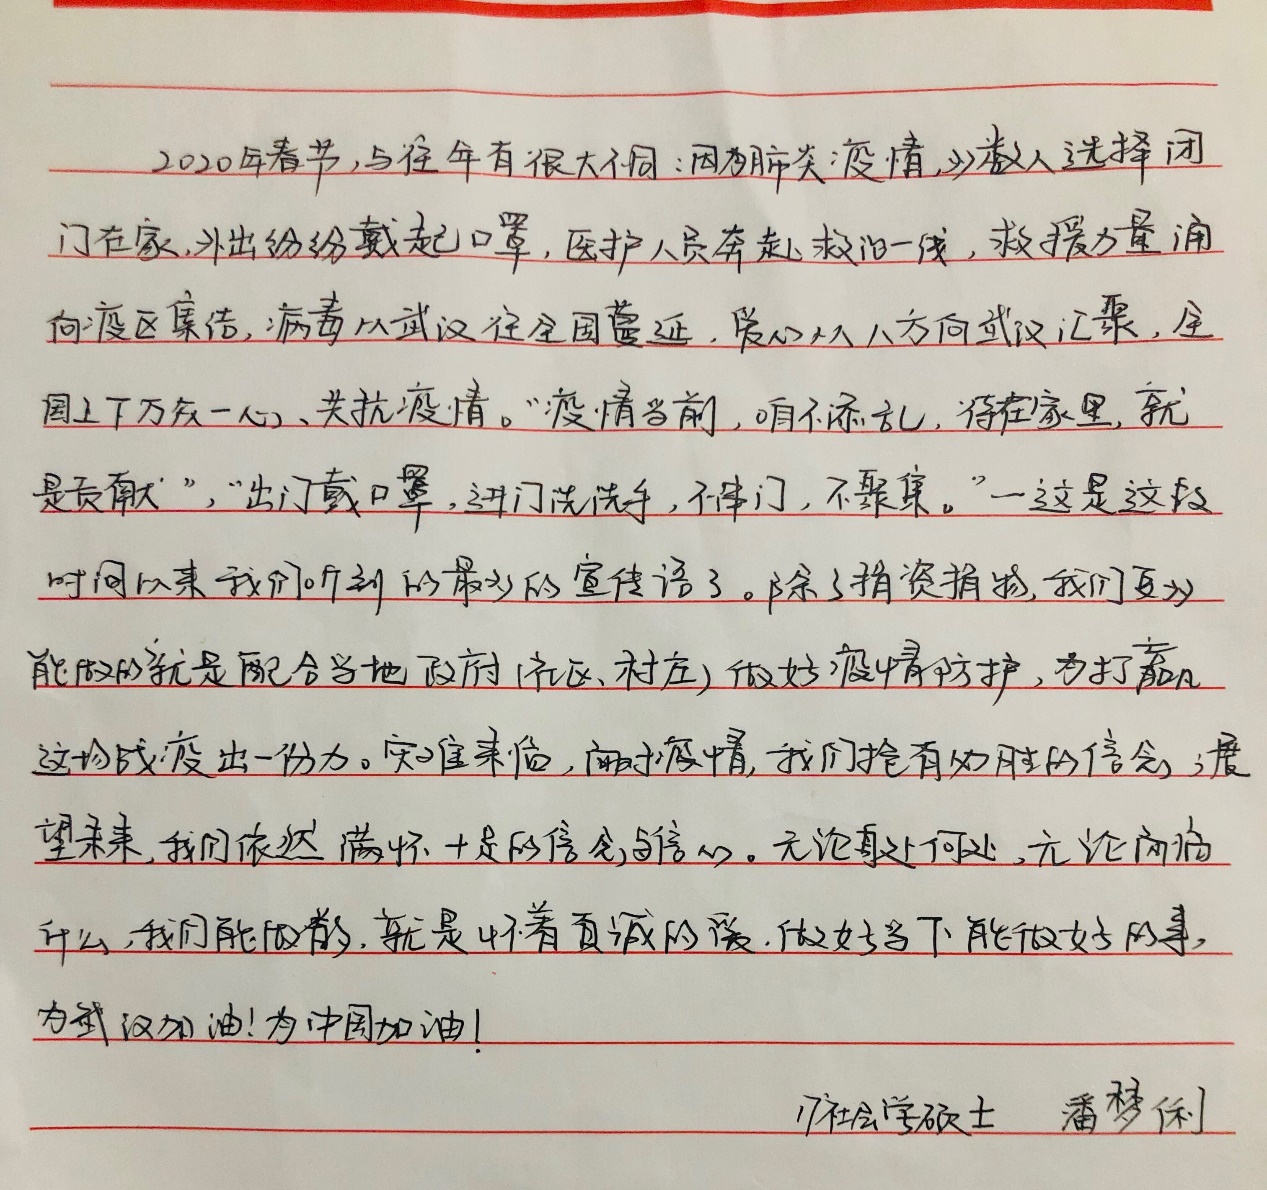 2020年春节,与往年有很大不同:因为肺炎疫情,多数人选择闭
门在家,外出纷纷戴起口罩,医护人员奔赴救治一线,救援力量涌
向疫区集结,病毒从武汉往全国蔓延,爱心从八方向武汉汇聚,全
国上下万众一心、共抗疫情。“疫情当前,咱不添乱,待在家里,就
是贡献”,“出门戴口罩,进门洗洗手,不串门,不聚集。”一这是这段
时间以来我们听到的最多的宣传语了。除了捐资捐物,我们更多
能做的就是配合当地政府(社区、村庄)做好疫情防护,为打赢
这场战疫出一份力。灾难来临,面对疫情,我们抱有必胜的信念;展
望未来,我们依然满怀十足的信念与信心。无论身处何处,无论面临
什么,我们能做的,就是怀着真诚的爱,做好当下能做好的事,
为武汉加油!为中国加油!
17社会学硕士 潘梦俐